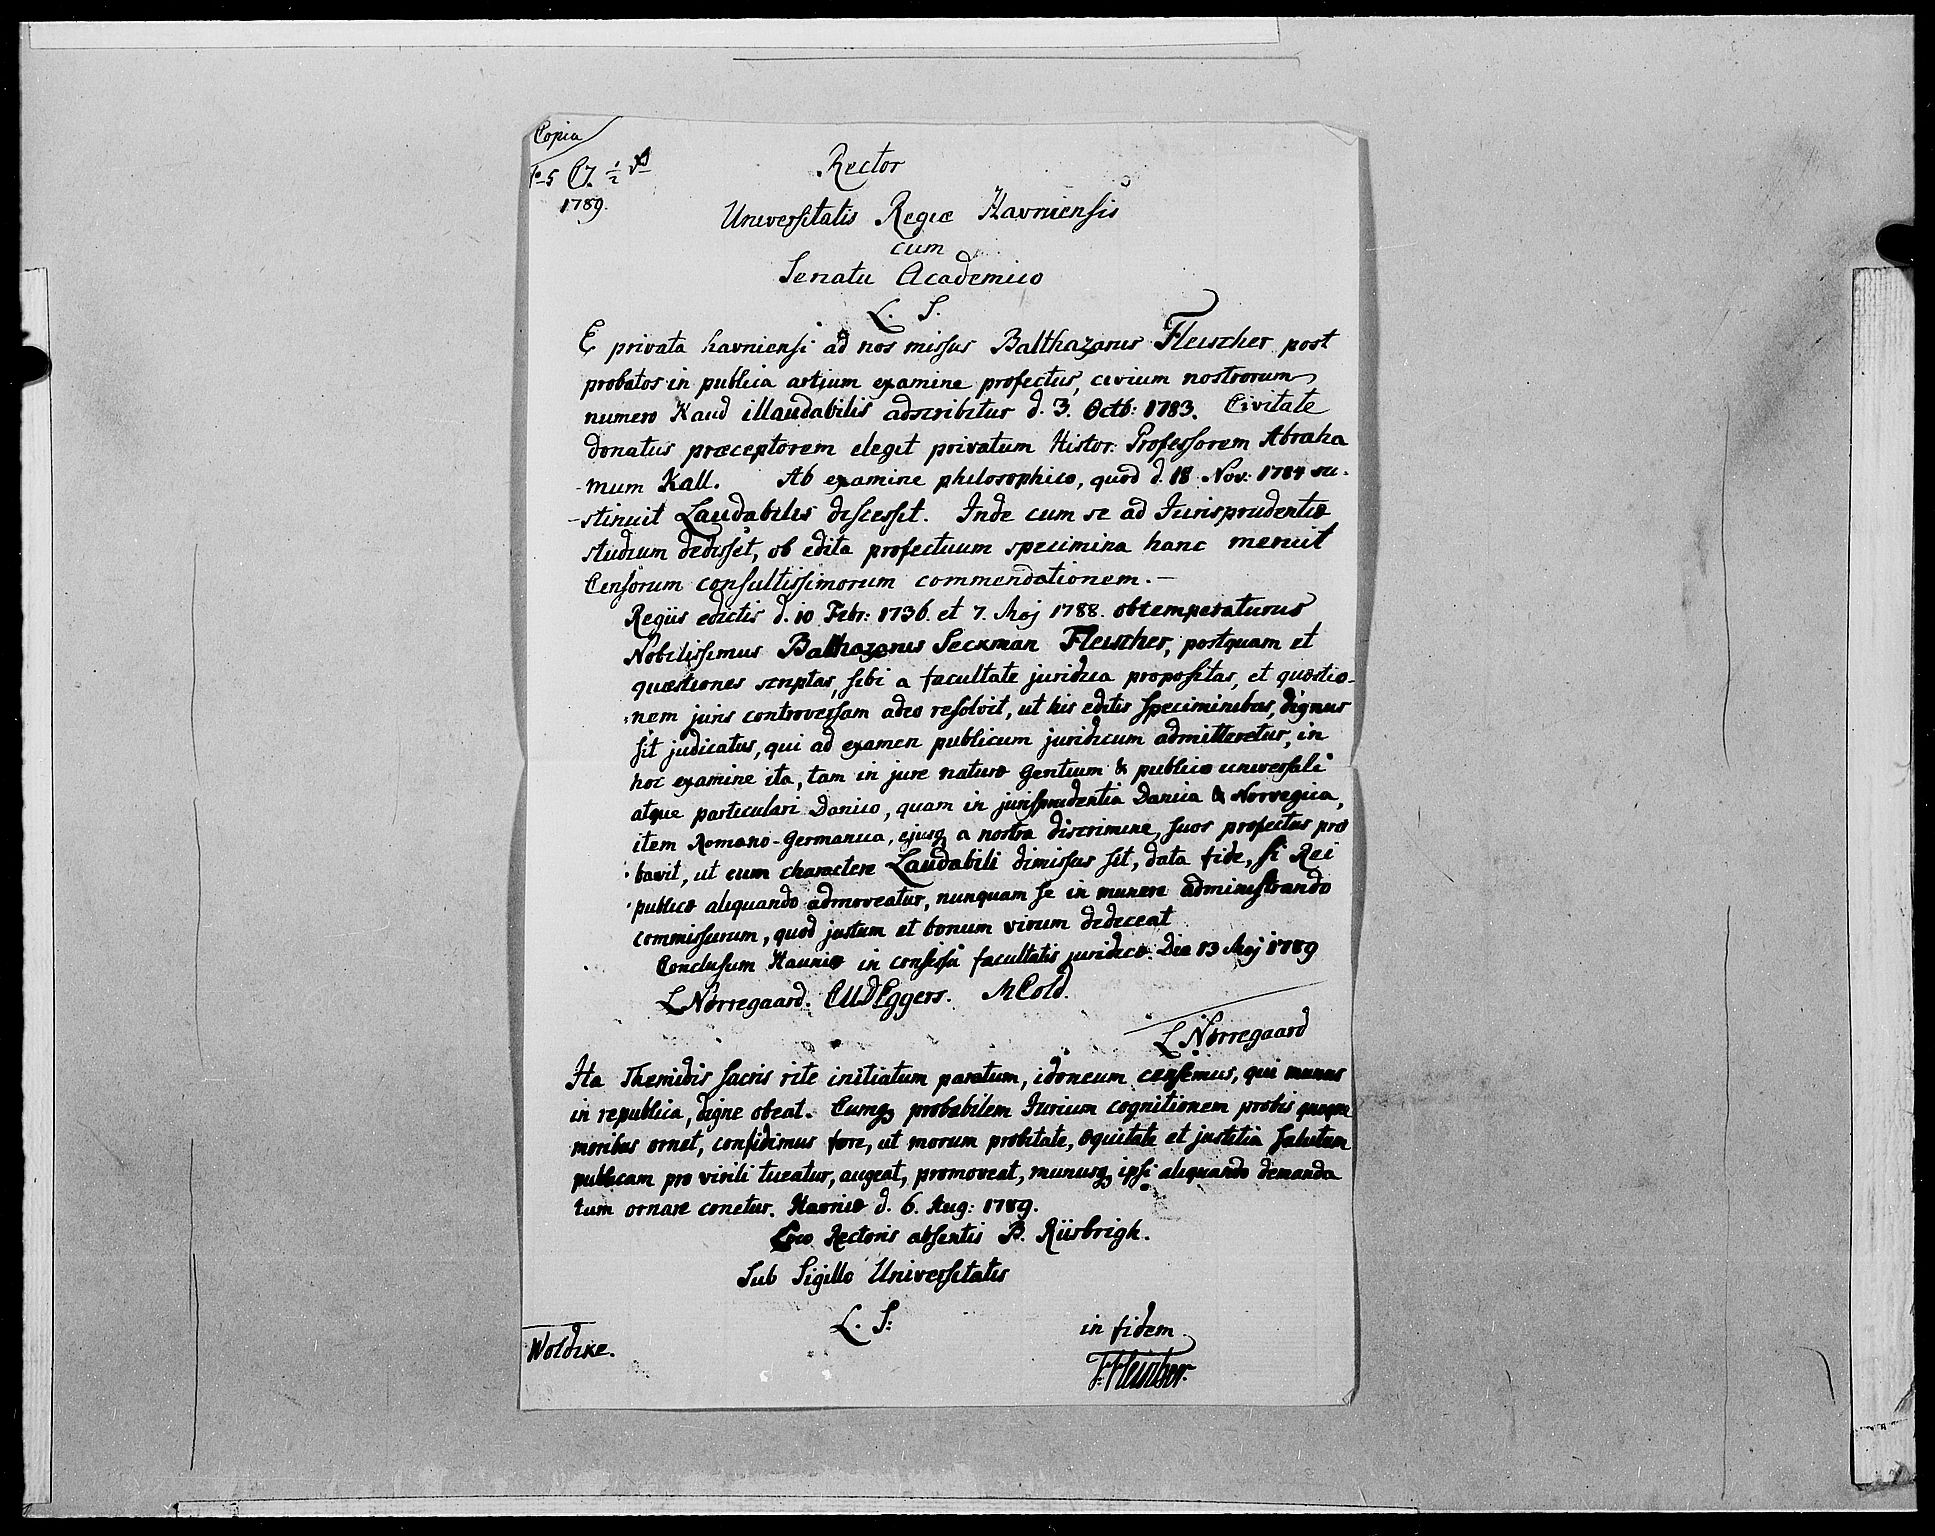 Copia
1789.
Rector
Universitatis Regiæ Havniensis
cum
Senatu Academico
L. S.
E privata havniensi ad nos missus Balthazarus Fleischer post
probatos in publica artium examine profectus, civium nostrorum
numero haud illaudabilis adscribitur d. 3. Octb: 1783. Civitate
donatus præceptorem elegit privatum Histor: Professorem Abraha
-mum Kall. Ab examine philosophico, quod d. 18 Nov: 1784 su-
-stinuit Laudabilis discessit. Inde cum se ad Jurisprudentiæ
studium dedisset, ob edita profectuum specimina hanc meruit
Censorum consultissimorum commendationem. —
Regiis edictis d. 10 Febr: 1736. et 7. Maj 1788. obtemperaturus
Nobilissimus Balthazarus Seckman Fleischer, postquam et
quæstiones scriptas, sibi a facultate juridica propositas, et quæstio-
nem juris controversam adeo resolvit, ut his editis speciminibus, dignus
sit judicatus, qui ad examen publicum juridicum admitteretur, in
hoc examine ita, tam in jure naturæ Gentium & publico universali
atque particulari Danico, quam in jurisprudentia Danica & Norvegica,
item Romano-Germanica, ejusq a nostra discrimine, suos profectus pro
bavit, ut cum charactere Laudabili dimissus sit, data fide, si Rei
publicæ aliquando admoveatur, nunquam se in munere administrando
commissurum, quod justum et bonum virum dedeceat
Conclusum Hauniæ in consessu facultatis juridicæ. Die 13 Maj 1789
L Nørregaard. CUDEggers. M Cold.
L Nørregaard
Ita Themidis sacris rite initiatum paratum, idoneum censemus, qui munus
in republica, digne obeat. Cumq probabilem Jurium cognitionem probis quoque
moribus ornet, confidimus fore, ut morum probitate, æquitate et justitia salutem
publicam pro virili tueatur, augeat, promoveat, munusq ipsi aliquando demanda
tum ornare conetur. Havniæ d. 6. Aug: 1789.
Loco Rectoris absentis B. Riisbrigh.
Sub Sigillo Universitatis
L. S:
in fidem
Woldike.
F: Fleischer.